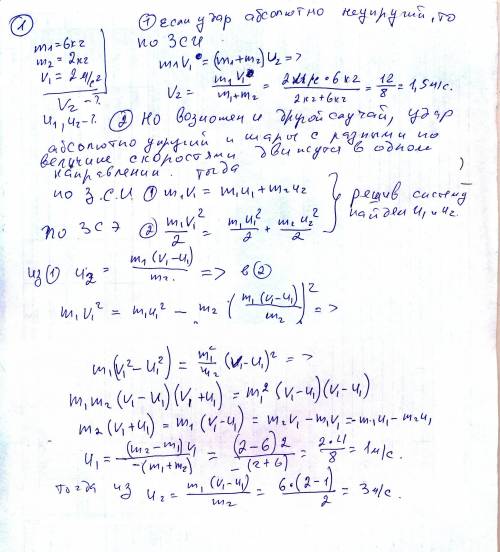 ① 
① Если удар абсолютно неупругий, то
по ЗСИ
m1 = 6кг
m2 = 2кг
V1 = 2 м/с
V2 - ?
u1, u2 - ?
m1V1 = (m1+m2) V2 =>
V2 = m1V1/(m1+m2) = 2 м/с · 6кг/(2кг+6кг) = 12/8 = 1,5м/с.
② Но возможен и другой случай, удар
абсолютно упругий и шары с разными по
величине скоростями движутся в одном
направлении. Тогда
по З.С.И ① m1V1 = m1u1 + m2u2
по ЗСЭ ② m1V1²/2 = m1u1²/2 + m2u2²/2
} решив систему
найдем u1 и u2.
из ① u2 = m1(V1-u1)/m2 => в ②
m1V1² = m1u1² - m2 (m1(V1-u1)/m2)² =>
m1(V1²-u1²) = m1²/m2 (V1-u1)² =>
m1m2 (V1-u1)(V1+u1) = m1² (V1-u1)(V1-u1)
m2(V1+u1) = m1(V1-u1) = m2V1 - m1V1 = -m1u1 - m2u1
u1 = (m2-m1)V1/-(m1+m2) = (2-6)2/-(2+6) = 2·4/8 = 1м/с.
тогда из u2 = m1(V1-u1)/m2 = 6·(2-1)/2 = 3м/с.